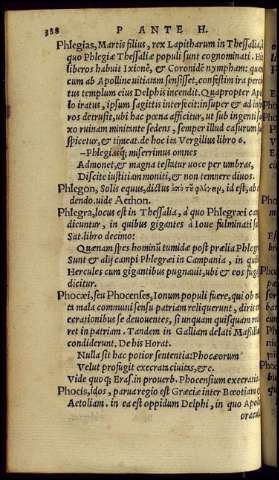 388 P ANTE H.
Phlegias, Martis filius, rex Lapitharum in Thessalia, à
quo Phlegiæ Thessaliæ populi sunt cognominati. Hic
liberos habuit Ixionē, & Coronidē nympham: quam
cum ab Apolline vitiatam sensisset, confestim ira percitus
tus templum eius Delphis incendit. Quapropter Apollo
lo iratus, ipsum sagittis interficit: insuper & ad inferos
ros detrusit, ubi hac pœna afficitur, ut sub ingenti saxo
xo ruinam minitante sedens, semper illud casurum su
spicetur, & timeat. de hoc ita Vergilius libro 6.
–Phlegiasq; miserrimus omnes
Admonet, & magna testatur voce per umbras,
Discite iustitiam moniti, & non temnere divos.
Phlegon, Solis equus, dictus ἀπὸ τῦ φλέγειν, id est, ab
dendo. vide Aethon.
Phlegra, locus est in Thessalia, à quo Phlegræi campi
dicuntur, in quibus gigantes à Ioue fulminati
Sat. libro decimo:
Quænam spes hominū tumidæ post prælia Phlegræ
Sunt & alij campi Phlegræi in Campania, in quibus
Hercules cum gigantibus pugnauit, ubi & eos fuga
dicitur.
Phocæi, seu Phocenses, Ionum populi fuere, qui ob
ta mala communi sensu patriam reliquerunt, diris
ecrationibus se deuouentes, si unquam quisquam
ret in patriam. Tandem in Galliam delati Massiliam
condiderunt. De his Horat.
Nulla sit hac potior sententia: Phocæorum
Velut profugit execrata ciuitas, &c.
Vide quoq; Eras. in prouerb. Phocensium execratio.
Phocis, idos, parua regio est Græciæ inter Bœotiam &
Aetoliam. in ea est oppidum Delphi, in quo Apollinis
oracu